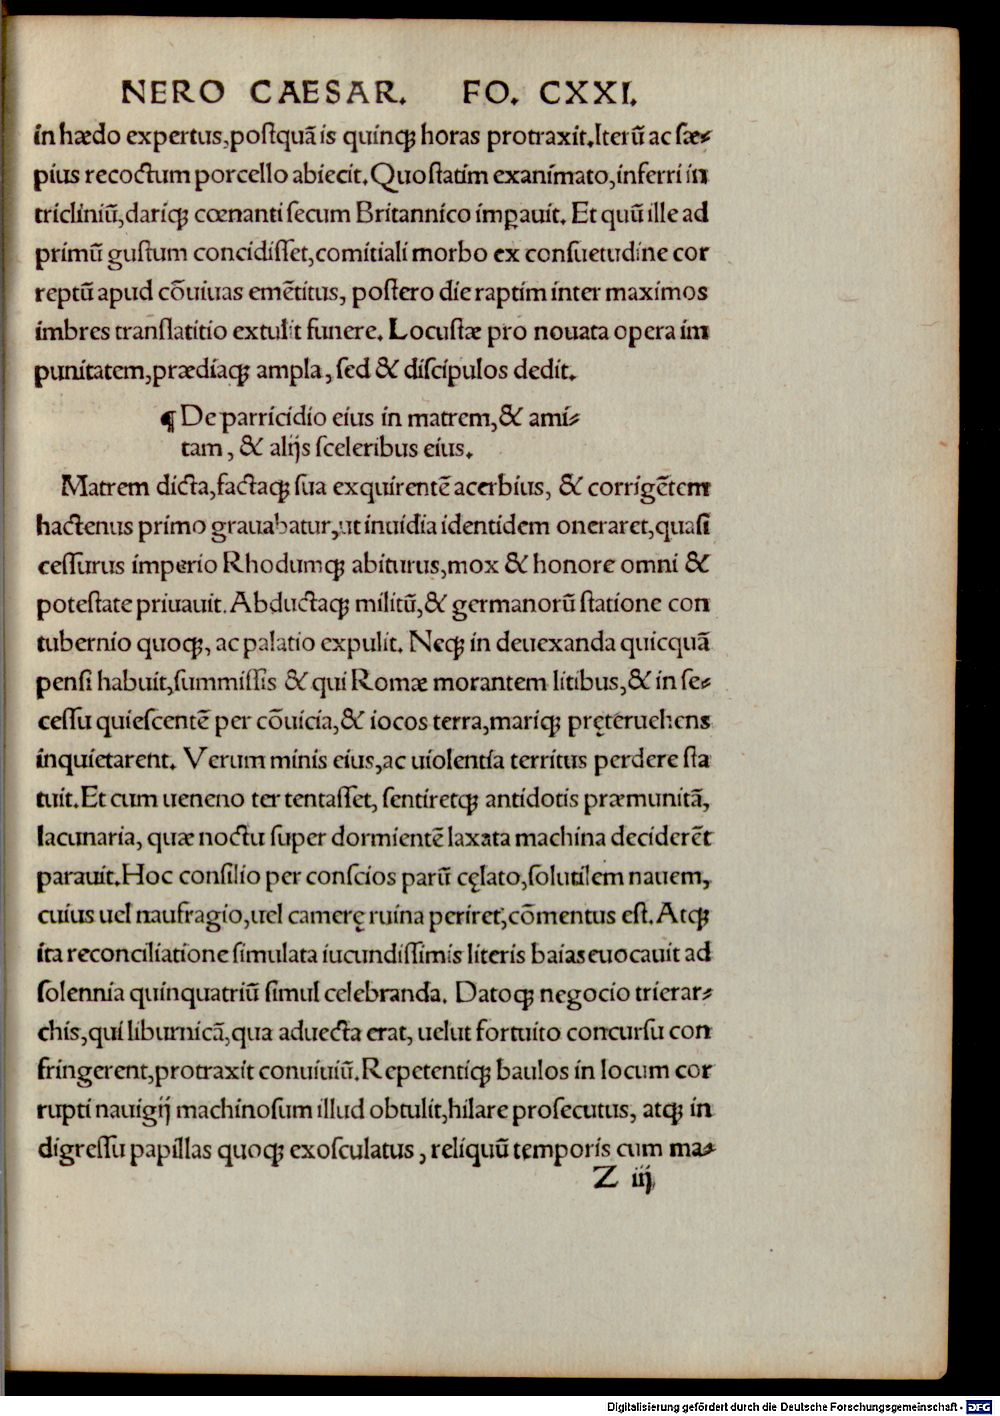 NERO CAESAR. FO. CXXI.
in hædo expertus,postquã is quinqꝫ horas protraxit.Iterũ ac sæ⸗
pius recoctum porcello abiecit.Quo statim exanimato,inferri in
tricliniũ,dariqꝫ cœnanti secum Britannico imꝑauit. Et quũ ille ad
primũ gustum concidisset,comitiali morbo ex consuetudine cor
reptũ apud cõuiuas emẽtitus, postero die raptim inter maximos
imbres translatitio extulit funere. Locustæ pro nouata opera im
punitatem,prædiaqꝫ ampla, sed & discipulos dedit.
¶ De parricidio eius in matrem,& ami⸗
tam, & alijs sceleribus eius.
Matrem dicta,factaqꝫ sua exquirentẽ acerbius, & corrigẽtem
hactenus primo grauabatur,ut inuidia identidem oneraret,quasi
cessurus imperio Rhodumqꝫ abiturus,mox & honore omni &
potestate priuauit.Abductaqꝫ militũ,& germanorũ statione con
tubernio quoqꝫ, ac palatio expulit. Neqꝫ in deuexanda quicquã
pensi habuit,summissis & qui Romæ morantem litibus,& in se⸗
cessu quiescentẽ per cõuicia,& iocos terra,mariqꝫ pręteruehens
inquietarent. Verum minis eius,ac uiolentia territus perdere sta
tuit.Et cum ueneno ter tentasset, sentiretqꝫ antidotis præmunitã,
lacunaria, quæ noctu super dormientẽ laxata machina deciderẽt
parauit.Hoc consilio per conscios parũ cęlato,solutilem nauem,
cuius uel naufragio,uel camerę ruina periret,cõmentus est.Atqꝫ
ita reconciliatione simulata iucundissimis literis baias euocauit ad
solennia quinquatriũ simul celebranda. Datoqꝫ negocio trierar⸗
chis,qui liburnicã,qua aduecta erat, uelut fortuito concursu con
fringerent,protraxit conuiuiũ.Repetentiqꝫ baulos in locum cor
rupti nauigij machinosum illud obtulit,hilare prosecutus, atqꝫ in
digressu papillas quoqꝫ exosculatus, reliquũ temporis cum ma⸗
Z iij
Digitalisierung gefördert durch die Deutsche Forschungsgemeinschaft - DFG